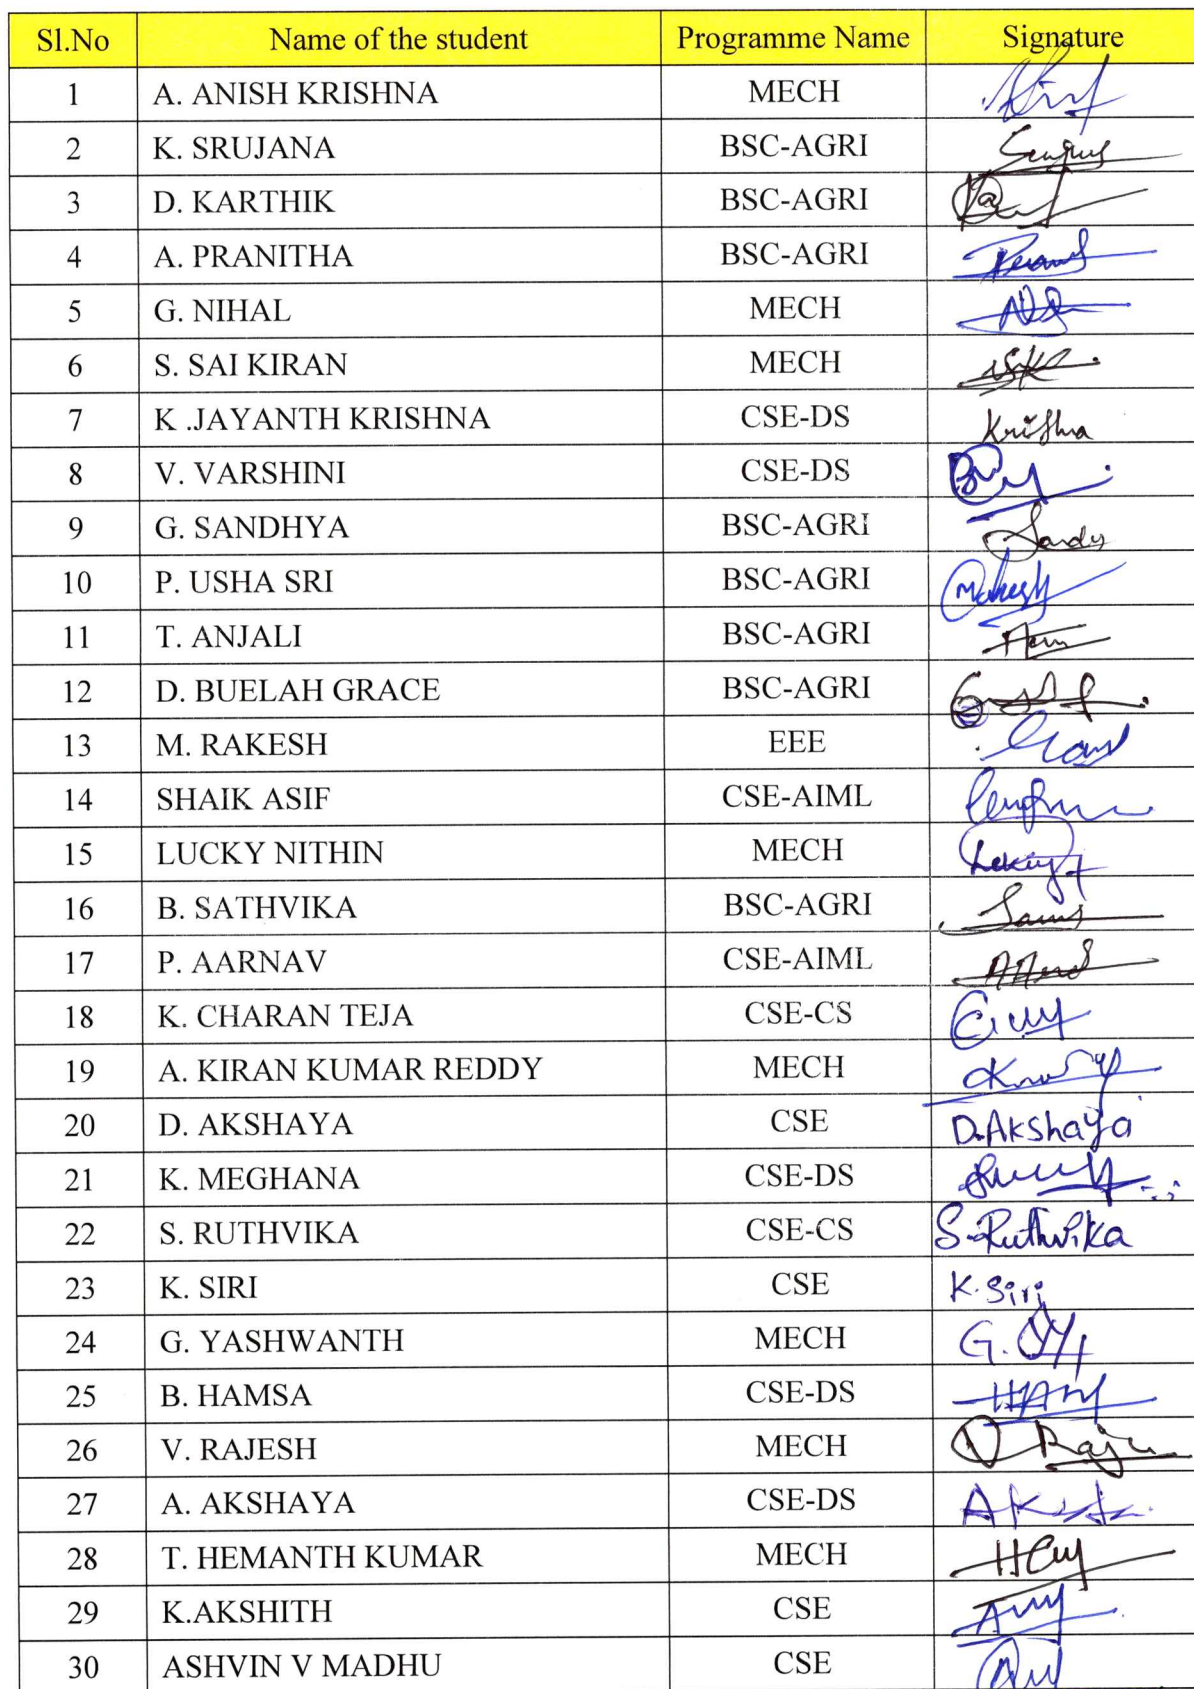 Sl.No Name of the student Programme Name Signature
1 A. ANISH KRISHNA MECH
2 K. SRUJANA BSC-AGRI
3 D. KARTHIK BSC-AGRI
4 A. PRANITHA BSC-AGRI
5 G. NIHAL MECH
6 S. SAI KIRAN MECH
7 K .JAYANTH KRISHNA CSE-DS Krishna
8 V. VARSHINI CSE-DS
9 G. SANDHYA BSC-AGRI Sandy
10 P. USHA SRI BSC-AGRI Mahesh
11 T. ANJALI BSC-AGRI
12 D. BUELAH GRACE BSC-AGRI
13 M. RAKESH EEE
14 SHAIK ASIF CSE-AIML
15 LUCKY NITHIN MECH
16 B. SATHVIKA BSC-AGRI
17 P. AARNAV CSE-AIML
18 K. CHARAN TEJA CSE-CS
19 A. KIRAN KUMAR REDDY MECH
20 D. AKSHAYA CSE D.Akshaya
21 K. MEGHANA CSE-DS
22 S. RUTHVIKA CSE-CS S.Ruthvika
23 K. SIRI CSE K.Siri
24 G. YASHWANTH MECH
25 B. HAMSA CSE-DS
26 V. RAJESH MECH
27 A. AKSHAYA CSE-DS
28 T. HEMANTH KUMAR MECH
29 K.AKSHITH CSE
30 ASHVIN V MADHU CSE